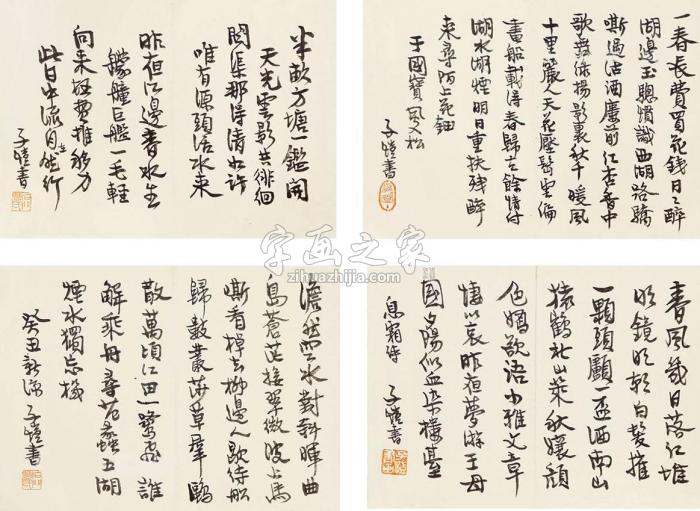 半畝方塘鑑開
天光雲影共徘徊
問渠那得清如許
唯有源頭活水來
昨夜江邊春水生
艨艟巨艦一毛輕
向來枉費推移力
此日中流自在行
子愷書
一春長費買花錢日日醉
湖邊玉驄慣識西湖路驕
嘶過沽酒壚前紅杏香中
歌舞綠楊影裏秋千暖風
十里麗人天花壓鬢雲偏
畫船載得春歸去餘情付
湖水湖煙明日重扶殘醉
來尋陌上花鈿
于國寶風入松
子愷書
澹然空水對斜暉曲
島蒼茫接翠微波上馬
嘶看棹去柳邊人歇待船
歸數叢莎草羣鷗
散萬頃江田一鷺飛誰
解乘舟尋范蠡五湖
煙水獨忘機
癸丑新涼子愷書
春風幾日落紅堆
明鏡明朝白髮摧
一顆頭顱一盃酒南山
猿鶴北山萊秋孃顏
色嬌欲語小雅文章
悽以哀昨夜夢游王母
國夕陽似血染樓臺
息霜詩 子愷書
字画之家
zihuazhijia.com